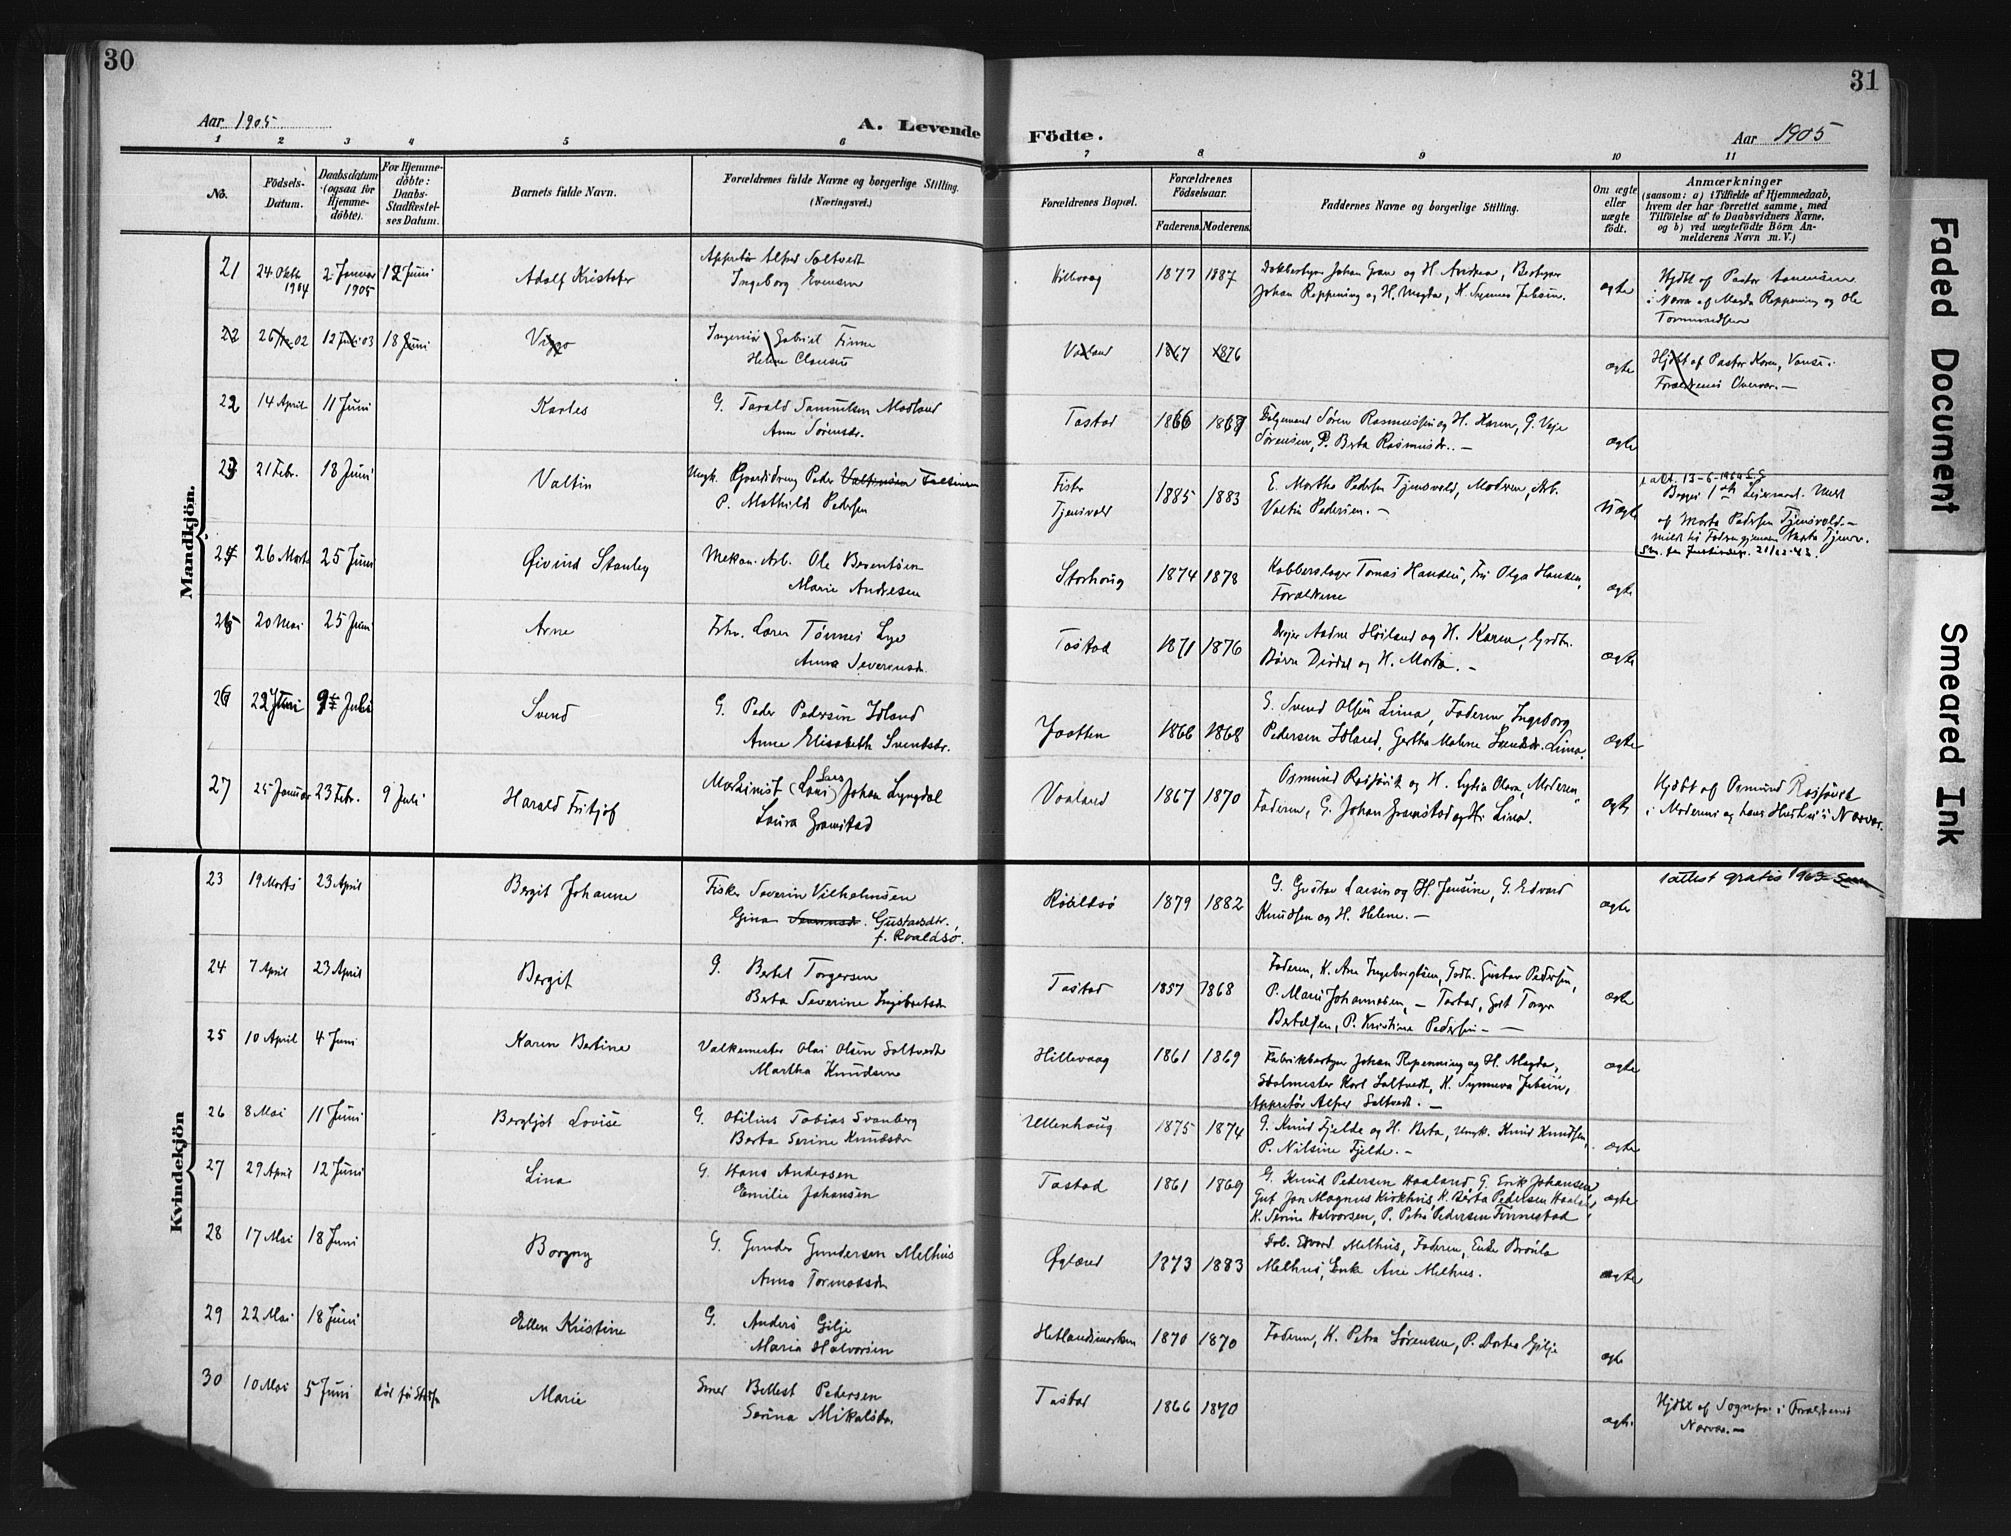 30
31
Aar 1905
A. Levende Födte.
Aar 1905
1 2 3 4 5 6 7 8 9 10 11
No.
Födsels-Datum.
Daabsdatum (ogsaa for Hjemmedöbte).
For Hjemmedöbte: Daabs-Stadfæstelses Datum.
Barnets fulde Navn.
Forældrenes fulde Navne og borgerlige Stilling. (Næringsvei.)
Forældrenes Bopæl.
Forældrenes Födselsaar.
Faderens. Moderens.
Faddernes Navne og borgerlige Stilling.
Om ægte eller uægte födt.
Anmærkninger
(saasom: a) i Tilfælde af Hjemmedaab, hvem der har forrettet samme, med Tilföielse af to Daabsvidners Navne, og b) ved uægtefödte Börn Anmelderens Navn m. V.)
Mandkjön.
21 24 Oktbr 1904 2 Januar 1905 12 Juni Adolf Kristofer
Appretør Alfred Saltvedt
Ingeborg Evensen
Hillevaag 1877 1887
Johan Reppening og H. Magda, K. Synneva Jebsen.
ægte
Hjdbt af Pastor
i Nærv. af Magda Reppening og Ole
22 26 02 12 Juli 03 18 Juni Viggo
Ingeniør Gabriel Finne
Helene Clausen
Vaaland 1867 1876 ægte
Hjdbt af Pastor Koren, Vanse i
Forældrenes Overvær. —
22 14 April 11 Juni Karles
G. Tarald Samuelsen Madland
Ane Sørensdr.
Tastad 1866 1867
Følgemand Søren Rasmussen og H. Karen, G. Veje
Sørensen, P. Berta Rasmusdr. —
ægte
23 21 Febr. 18 Juni Valtin
Ungk. Peder Valtinsen
P. Mathilde Pedersen
Fister
Tjensvold
1885 1883
E. Martha Pedersen Tjensvold, Modren, Arb.
Valtin Pedersen. —
Uægte
13-6-1960
af Marta Pedersen Tjensvold. —
24 26 Marts 25 Juni Øivind Stanley
Mekan. Arb. Ole Berentsen
Marie Andresen
Storhoug 1874 1878
Kobberslager Tomas Hansen, Fru Olga Hansen,
Forældrene
ægte
25 20 Mai 25 Juni Arne
Fhv. Lærer Tönnes Lye
Anna Severensdr.
Tastad 1871 1876
Drejer Aadne Höiland og H. Karen, Grdh.
Børre Dirdal og H. Marta. —
ægte
26 22 Juni 9 Juli Svend
G. Peder Pedersen Idland
Anne Elisabeth Svendsdr.
Jaatten 1866 1868
G. Svend Olsen Lima, Faderen, Ingeborg
Pedersen Idland, Gertha Malene Svendsdr. Lima.
ægte
27 25 Januar 23 Febr. 9 Juli Harald Fritjof
Maskinist (Lars) Johan Lyngdal
Laura Gramstad
Vaaland 1867 1870
Osmund Rossavik og H. Lydia Olava, Moderen,
Faderen, G. Johan Gramstad og Lina.
ægte
Hjdbt af Osmund Rossavik
i Moderens og hans Hustrus Nærvær.
Kvindekjön
23 19 Marts 23 April Bergit Johanne
Fisker Severin Vilhelmsen
Gina Severinsdr. Gustavsdtr.
f. Roaldsø.
Roaldsø 1879 1882
G. Gustav Larsen og H. Jensine, G. Edvard
Knudsen og H. Helene. —
ægte
1 attest gratis 1963
24 7 April 23 April Bergit
G. Bertel Torgersen
Berta Severine Ingebretsdr
Tastad 1857 1868
Faderen, K. Ane Ingebrigtsen, Grdh. Gustav Pedersen,
P. Marie Johannesen, — Tastad, Gut Torger
Bertelsen, P. Kristina Pedersen — —
ægte
25 10 April 4 Juni Karen Bertine
Valkemester Olai Olsen Saltvedt
Martha Knudsen
Hillevaag 1861 1869
Fabrikbestyrer Johan Repenning og H. Magda,
Skolmester Karl Saltvedt, K. Synneva Jebsen,
Appretør Alfred Saltvedt. —
ægte
26 8 Mai 11 Juni Bergljot Lovise
G. Otilius Tobias Svanberg
Berta Serine Knudsdr
Ullenhaug 1875 1874
G. Knud Fjelde og H. Berta, Ungk. Knud Knudsen,
P. Nilsine Fjelde. —
ægte
27 29 April 12 Juni Lina
G. Hans Andersen
Emilie Johansen
Tastad 1861 1869
G. Knud Pedersen Haaland, G. Erik Johansen
Gut Jon Magnus Kirkhus, K. Berta Pedersen Haaland,
K. Serine Halvorsen, P. Petra Pedersen Finnestad
ægte
28 17 Mai 18 Juni Borgny
G. Gunder Gundersen Melhus
Anna Tormodsdr
Øglænd 1873 1883
Melhus, Faderen, Enke
Melhus, Enke Ane Melhus.
ægte
29 22 Mai 18 Juni Ellen Kristine
G. Anders Gilje
Maria Halvorsen
Hetlandsmarken 1870 1870
Faderen, K. Petra Sørensen, P. Dortea Gilje
ægte
30 10 Mai 5 Juni død før Marie
Smed Bellest Pedersen
Serina Mikalsdr
Tastad 1866 1870 ægte
Hjdbt af Sognepr. i Forældrenes
Nærvær. —
Faded Document
Smeared Ink